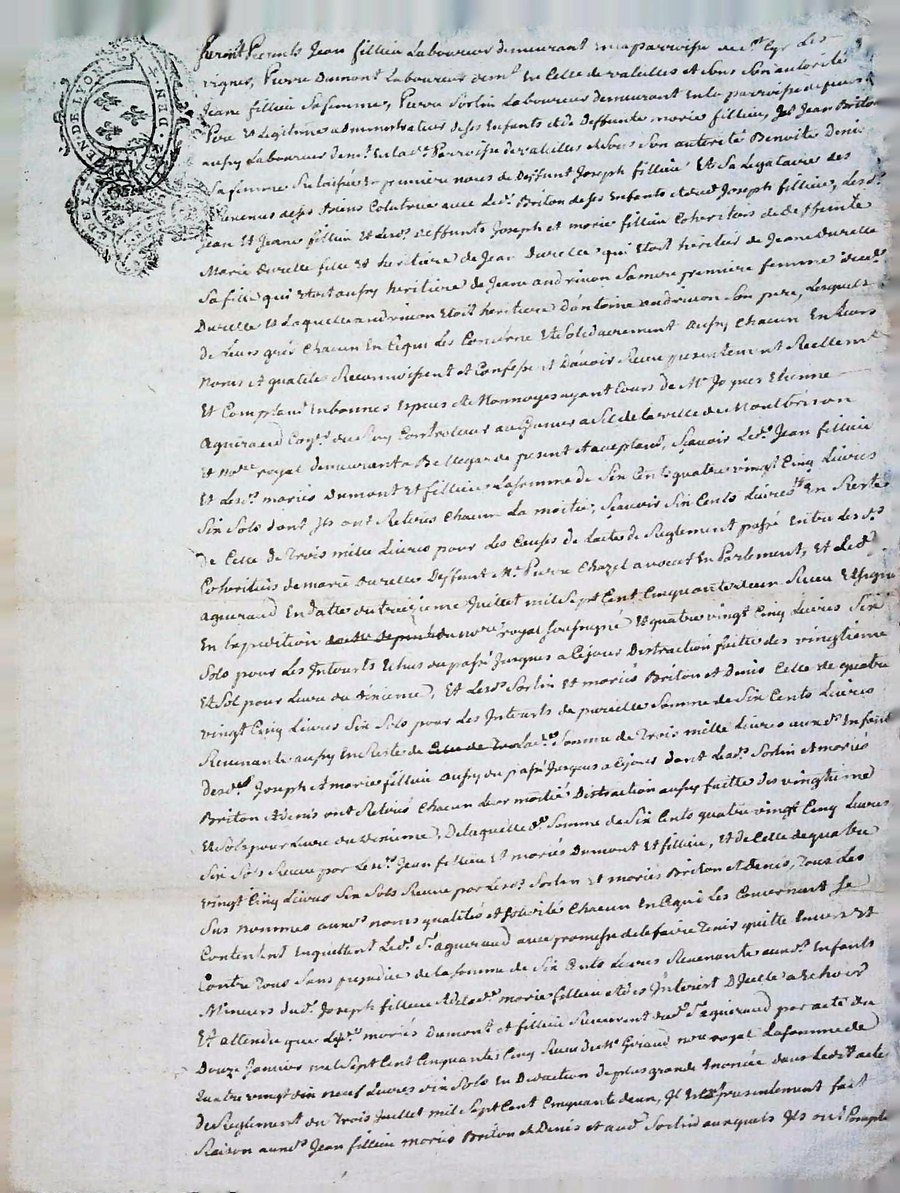 GEN · DE · LYON
furent Presents Jean fillieu Laboureur demeurant en la parroisse de St Cyr Les
vignes, Pierre Dumont Laboureur demt En Celle de valeilles et sous son autorité
Jeane fillieu sa femme, Pierre Sorlin Laboureur demeurant En la parroisse de
Pere et Legitime administrateur de ses Enfants et de deffunte marie fillieu, Jean Briton
aussy Laboureur demt En lad. Parroisse de valeilles et sous son autorité Benoite Denis
sa femme Relaissée En premiere noces de deffunt Joseph fillieu Et sa Legataire des
Revenus de ses Biens avec led. Briton de ses Enfants et dud. Joseph fillieu, Lesd.
Jean Et Jeane fillieu Et lesd. deffunts Joseph et marie fillieu Coheritiers de deffunte
Marie Durelle fille et heritiere de Jean Durelle qui Etoit heritier de Jeane Durelle
sa fille qui Etoit aussy heritiere de Jeane andrivon sa mere premiere femme dud.
Durelle Et Laquelle andrivon Etoit heritiere d'antoine andrivon son pere, Lesquels
de Leurs grés Chacun En Ce qui Les Concerne Et solidairement aussy Chacun En leurs
noms et qualités Reconnoissent et Confessent D'avoir Reçu presentement Reellement
Et Comptant En bonnes Especes de Monnoyes ayant Cours de Me Jaques Etienne
aguiraud Coner du Roy Controleur au Grenier a Sel de la ville de Montbrison
et nore royal demeurant a Bellegarde present et acceptant, sçavoir Led. Jean fillieu
Et Lesd. mariés Dumont Et fillieu La somme de Six Cent quatre vingt Cinq Livres
Six Sols dont Ils ont Retirés Chacun La moitié; sçavoir Six Cents Livres En Reste
de Celle de Trois mille Livres pour Les Causes de Lacte de Reglement passé Entre Lesd.
Coheritiers de marie Durelle, Deffunt Me Pierre Chazel avocat En Parlement, et Led.
aguiraud En datte du treizieme Juillet mil Sept Cent Cinquante deux Reçu Et signé
En Expedition nore royal soussigné Et quatre vingt Cinq Livres Six
Sols pour Les Interests Echus du passé Jusques a Ce jour Distraction faite des vingtieme
Et Sol pour Livre du dixieme, Et Lesd. Sorlin Et mariés Briton et Denis Celle de quatre
vingt Cinq Livres Six Sols pour Les Interests de pareille Somme de Six Cents Livres
Revenante aussy En Reste de La de Somme de Trois mille Livres auxd. Enfants
desd. Joseph et marie fillieu aussy du passé Jusques a Ce jour dont Lesd. Sorlin et mariés
Briton et Denis ont Retirés Chacun Leur moitié Distraction aussy faitte des vingtieme
et Sols pour Livre du dixieme, De laquelle de Somme de Six Cents quatre vingt Cinq Livres
Six Sols Reçue par Lesd. Jean fillieu et mariés Dumont Et fillieu, et de Celle de quatre
vingt Cinq Livres Six Sols Reçue par Lesd. Sorlin Et mariés Briton et Denis, Tous Les
Sus nommés auxd. noms qualités et solidités Chacun En Ce qui Les Concernent se
Contentent En quittent Led. Sr aguiraud avec promesse de le faire Tenir quitte Envers et
Contre Tous sans prejudice de la somme de Six Cents Livres Revenante auxd. Enfants
Mineurs dud. Joseph fillieu Et de lad. marie fillieu et des Interest D'Icelle a Echoir
Et attendu que Lesd. mariés Dumont et fillieu Reçurent dud. Sr aguiraud par acte du
Douze Janvier mil Sept Cent Cinquante Cinq Reçu de Me Giraud nore royal La somme de
Quatre vingt dix neuf Livres dix Sols En Deduction de plus grande Enoncée dans Ledit acte
de Reglement du Trois Juillet mil Sept Cent Cinquante deux, Il Est presentement fait
Raison auxd. Jean fillieu mariés Briton et Denis et aud. Sorlin auxquels Ils ont Compté